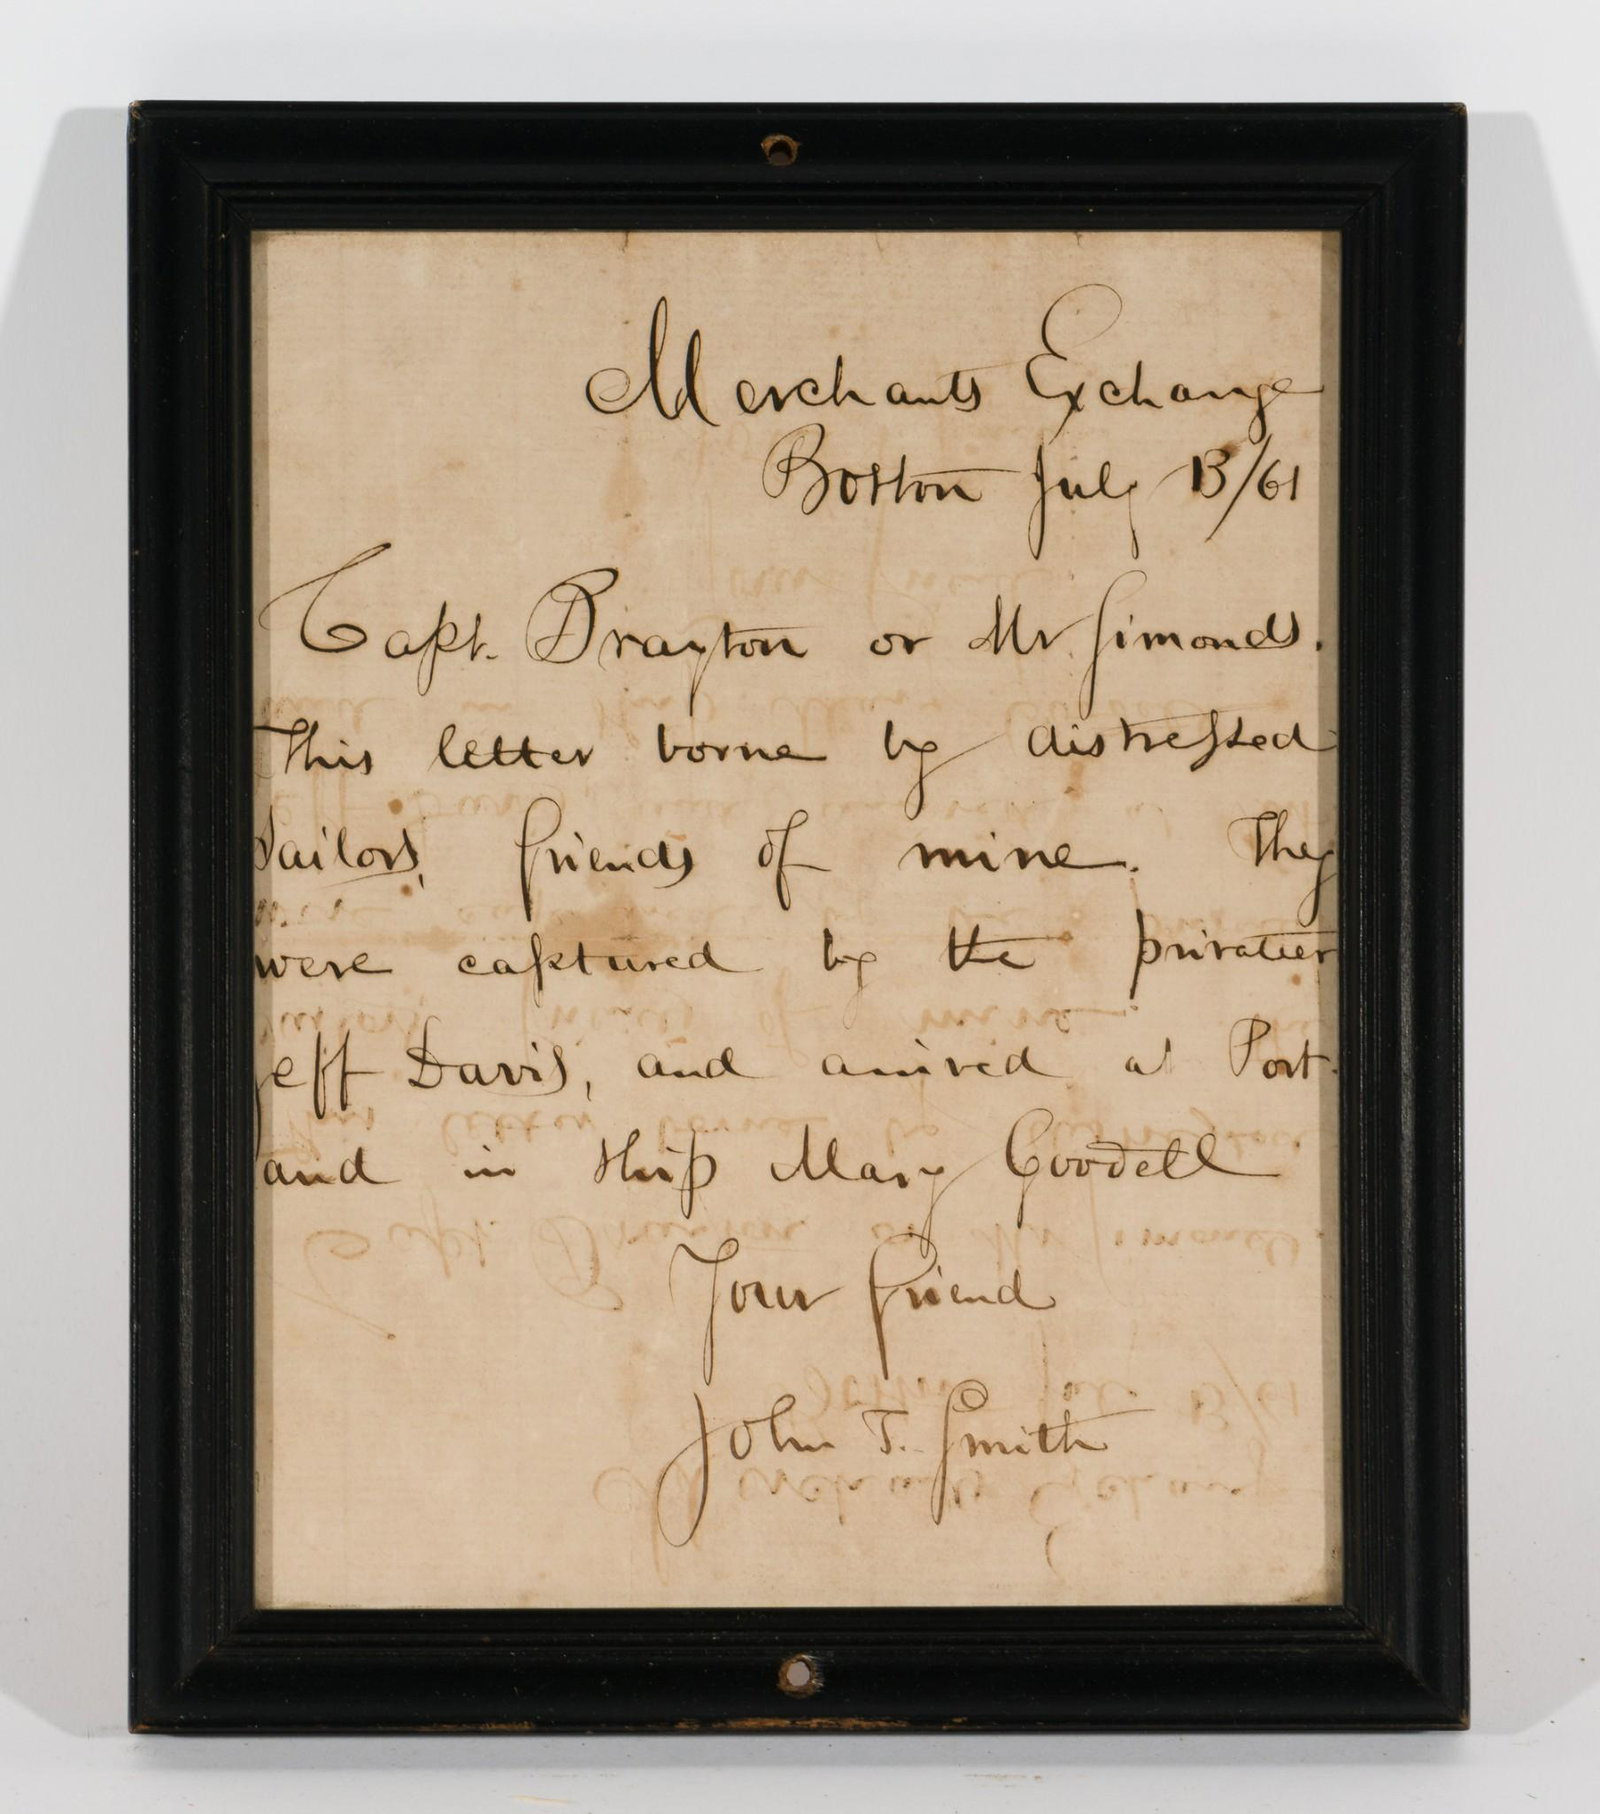 Merchants Exchange
Boston July 13/61
Capt. Brayton or Mr Simonds.
This letter borne by distressed
Sailors, friends of mine. They
were captured by the privateer
Jeff Davis, and arrived at Port-
land in ship Mary Goodell
Your friend
John T. Smith